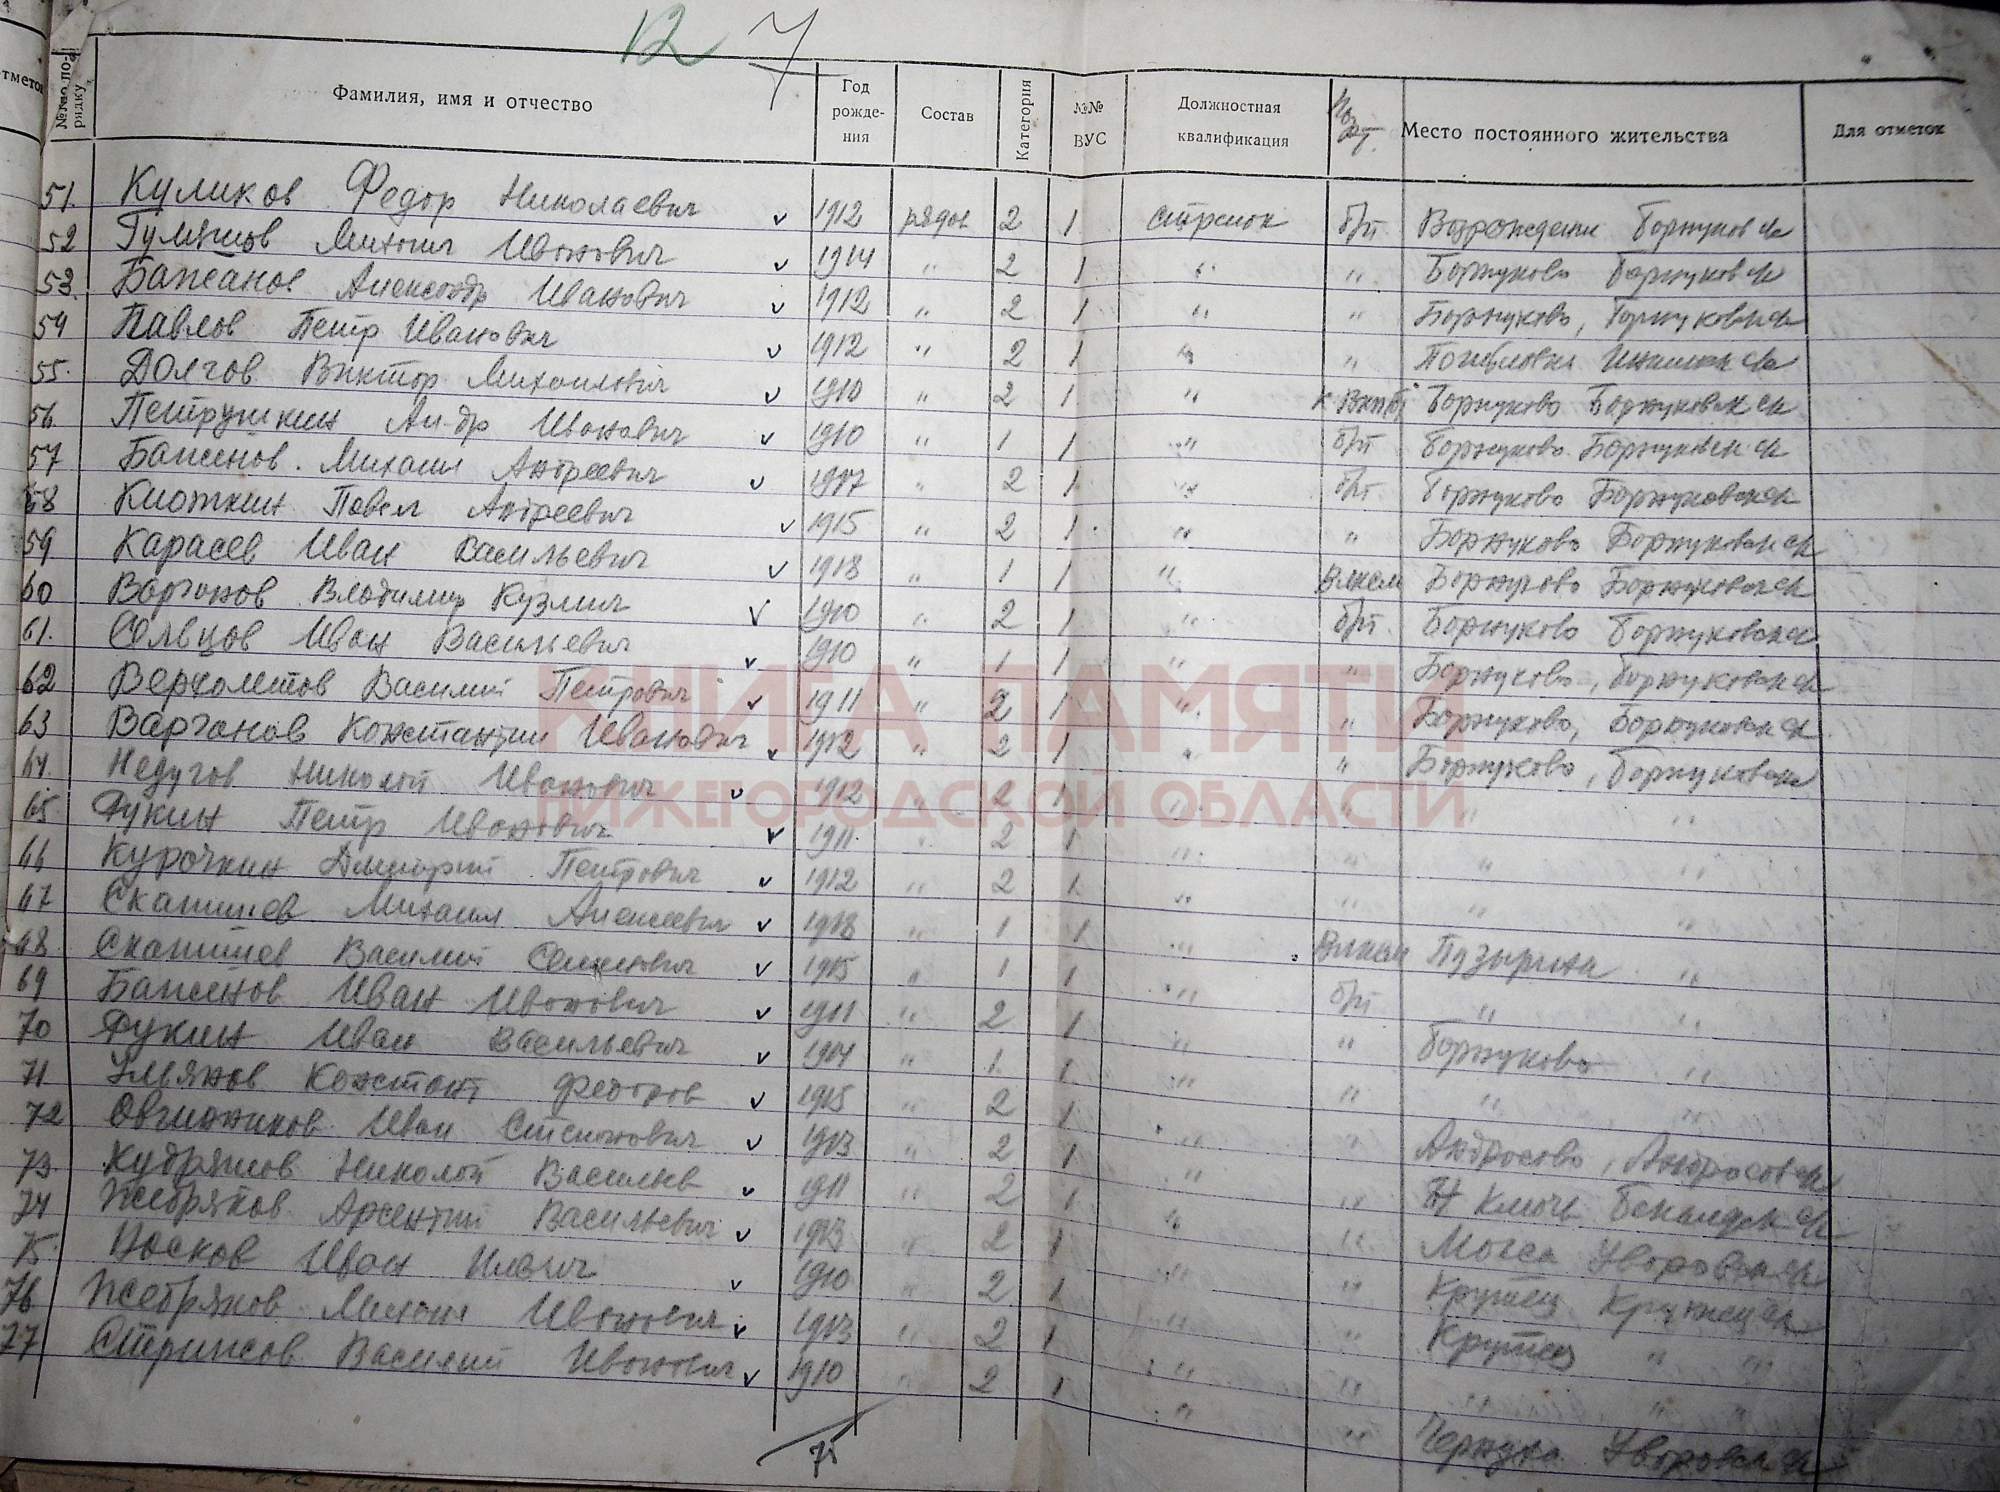 12 7
отметок
№№ по порядку
Фамилия, имя и отчество
Год рождения
Состав
Категория
№№ ВУС
Должностная квалификация
Место постоянного жительства
Для отметок
51. Куликов Федор Николаевич 1912 рядов 2 1 стрелок б/п Борнуковск
52 Михаил Иванович 1914 " 2 1 " " Борнуково Борнуковск
53. Баженов Александр Иванович 1912 " 2 1 " " Борнуково, Борнуковск
54 Павлов Петр Иванович 1912 " 2 1 " "
55. Долгов Виктор Михайлович 1910 " 2 1 " Борнуково Борнуковск
56. Петрушкин Ал-др Иванович 1910 " 1 1 " б/п Борнуково Борнуковск
57 Баженов Михаил Андреевич 1907 " 2 1 " б/п Борнуково Борнуковск
58 Павел Андреевич 1915 " 2 1 " " Борнуково Борнуковск
59 Карасев Иван Васильевич 1918 " 1 1 " Влксм Борнуково Борнуковск
60 Варганов Владимир Кузмич 1910 " 2 1 " б/п Борнуково Борнуковск
61. Иван Васильевич 1910 " 1 1 " " Борнуково, Борнуковск
62 Верхолетов Василий Петрович 1911 " 2 1 " " Борнуково, Борнуковск
63 Варганов Константин Иванович 1912 " 2 1 " " Борнуково, Борнуковск
64. Недугов Николай Иванович 1912 " 2 1 " " " "
65. Фукин Петр Иванович 1911 " 2 1 " " " "
66 Курочкин Дмитрий Петрович 1912 " 2 1 " " " "
67 Михаил Алексеевич 1918 " 1 1 " Влксм Пузыриха "
68 Василий Семенович 1915 " 1 1 " б/п " "
69 Баженов Иван Иванович 1911 " 2 1 " " Борнуково "
70 Фукин Иван Васильевич 1904 " 1 1 " " " "
71 Ульянов Констант 1915 " 2 1 " "
72 Овчинников Иван Степанович 1913 " 2 1 " Андросово, Андросовск
73 Кудряшов Николай Васильев 1911 " 2 1 " "
74 Жебряков Арсентий Васильевич 1913 " 2 1 " " Уваровск
75. Носков Иван Ильич 1910 " 2 1 " " Крутец Крутецк
76 Жебряков Михаил Иванович 1913 " 2 1 " " Крутец " "
77 Стрижов Василий Иванович 1910 " 2 1 " " " "
" " Чернуха Уваровск
75
КНИГА ПАМЯТИ
НИЖЕГОРОДСКОЙ ОБЛАСТИ